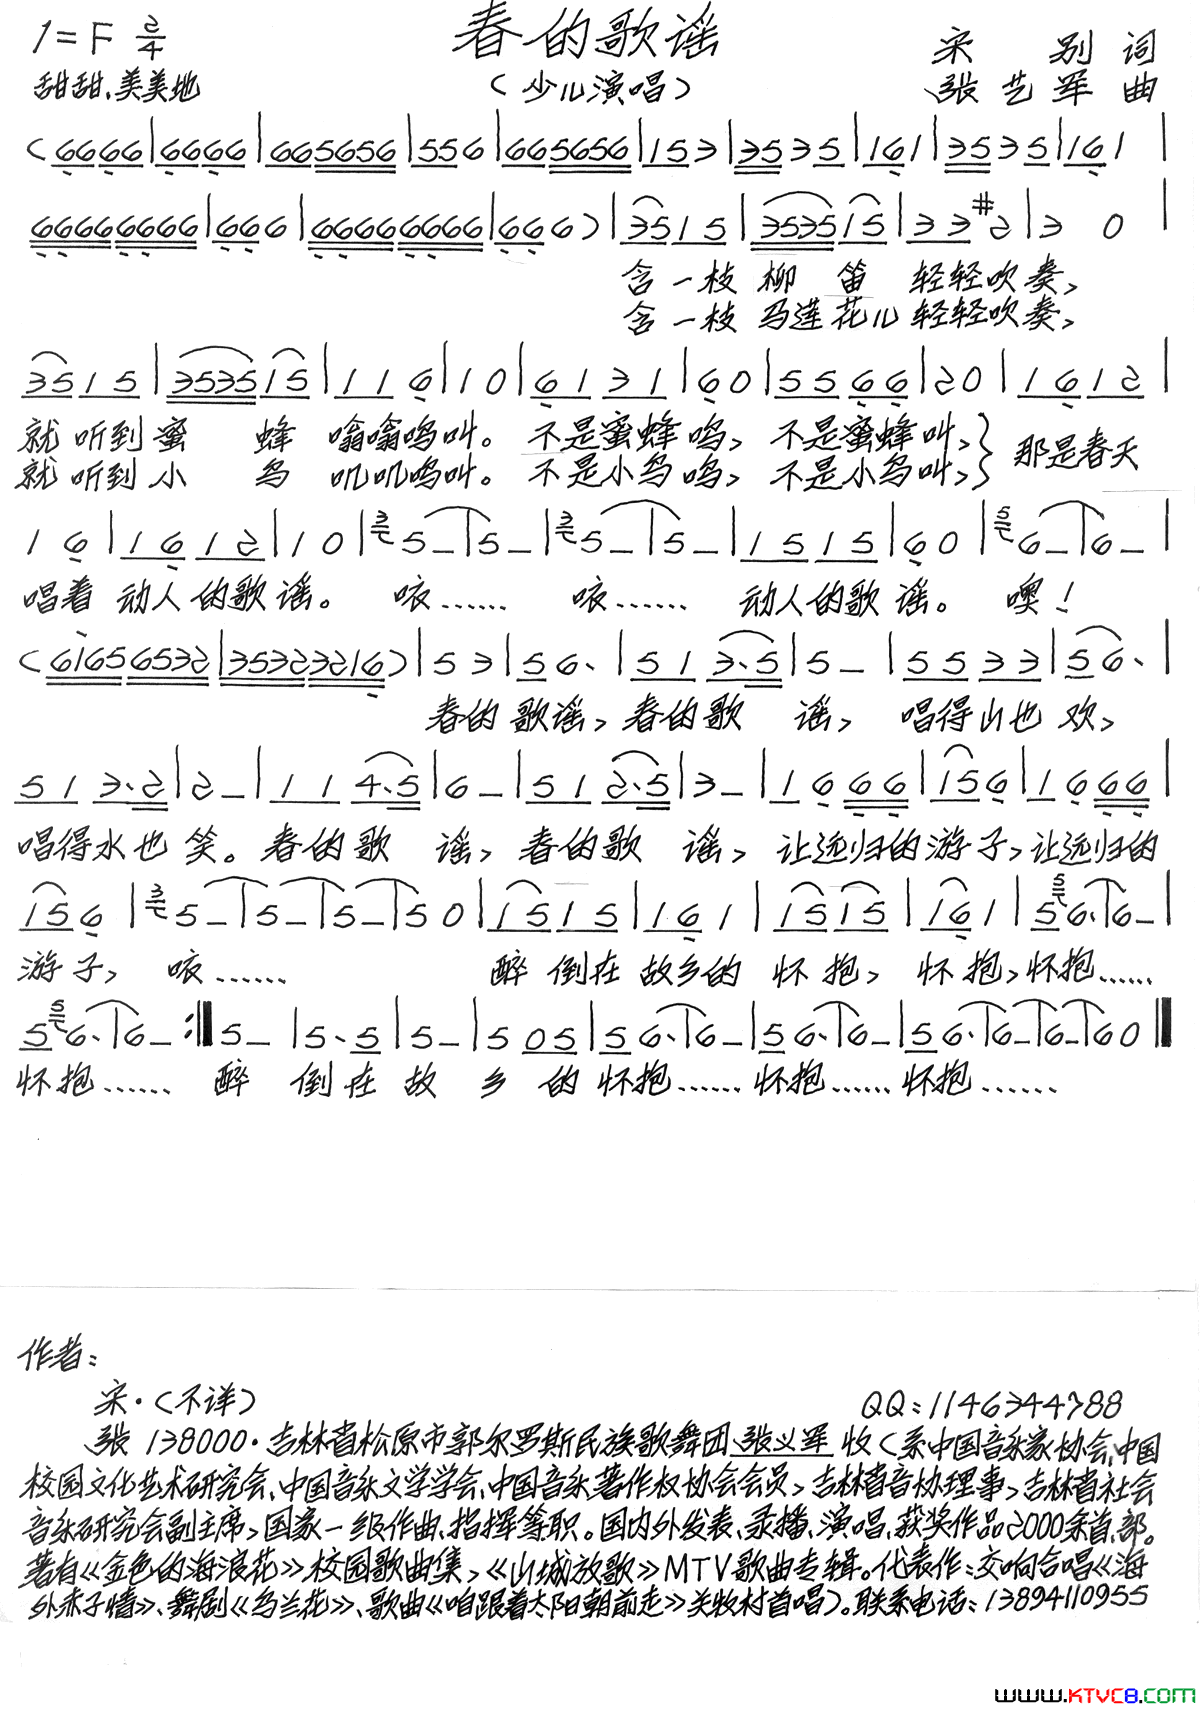 1=F 2/4
春的歌谣
(少儿演唱)
甜甜、美美地
宋 别 词
张艺军 曲
(6666|6666|665656|556|665656|153|3535|161|3535|161|
66666666|666|66666666|666)|3515|353515|33#2|3 0|
含一枝柳 笛 轻轻吹奏,
含一枝马莲花儿轻轻吹奏,
3515|353515|116|10|6131|60|5566|20|1612|
就听到蜜 蜂 嗡嗡鸣叫。不是蜜蜂鸣,不是蜜蜂叫,}那是春天
就听到小 鸟 叽叽鸣叫。不是小鸟鸣,不是小鸟叫,}
16|1612|10|3 5–|5–|3 5–|5–|1515|60|5 6–|6–|
唱着动人的歌谣。 咳…… 咳…… 动人的歌谣。 噢!
(61656532|35323216)|53|56·|513·5|5–|5533|56·|
春的歌谣,春的歌 谣, 唱得山也欢,
513·2|2–|114·5|6–|512·5|3–|1666|156|1666|
唱得水也笑。春的歌 谣,春的歌 谣,让远归的游子,让远归的
156|3 5–|5–|5–|50|1515|161|1515|161|5 5 6·|6–|
游子, 咳…… 醉倒在故乡的怀抱, 怀抱,怀抱……
5 5 6·|6–:‖5–|5·5|5–|505|56·|6–|56·|6–|56·|6–|6–|60‖
怀抱…… 醉 倒在 故 乡 的怀抱……怀抱……怀抱……
作者:
宋·(不详)
QQ:1146344788
张 138000·吉林省松原市郭尔罗斯民族歌舞团张义军收(系中国音乐家协会、中国
校园文化艺术研究会、中国音乐文学学会、中国音乐著作权协会会员,吉林省音协理事,吉林省社会
音乐研究会副主席,国家一级作曲、指挥等职。国内外发表、录播、演唱、获奖作品2000余首、部。
著有《金色的海浪花》校园歌曲集,《山城放歌》MTV歌曲专辑。代表作:交响合唱《海
外赤子情》、舞剧《乌兰花》、歌曲《咱跟着太阳朝前走》关牧村首唱)。联系电话:13894110955
www.KTVC8.com